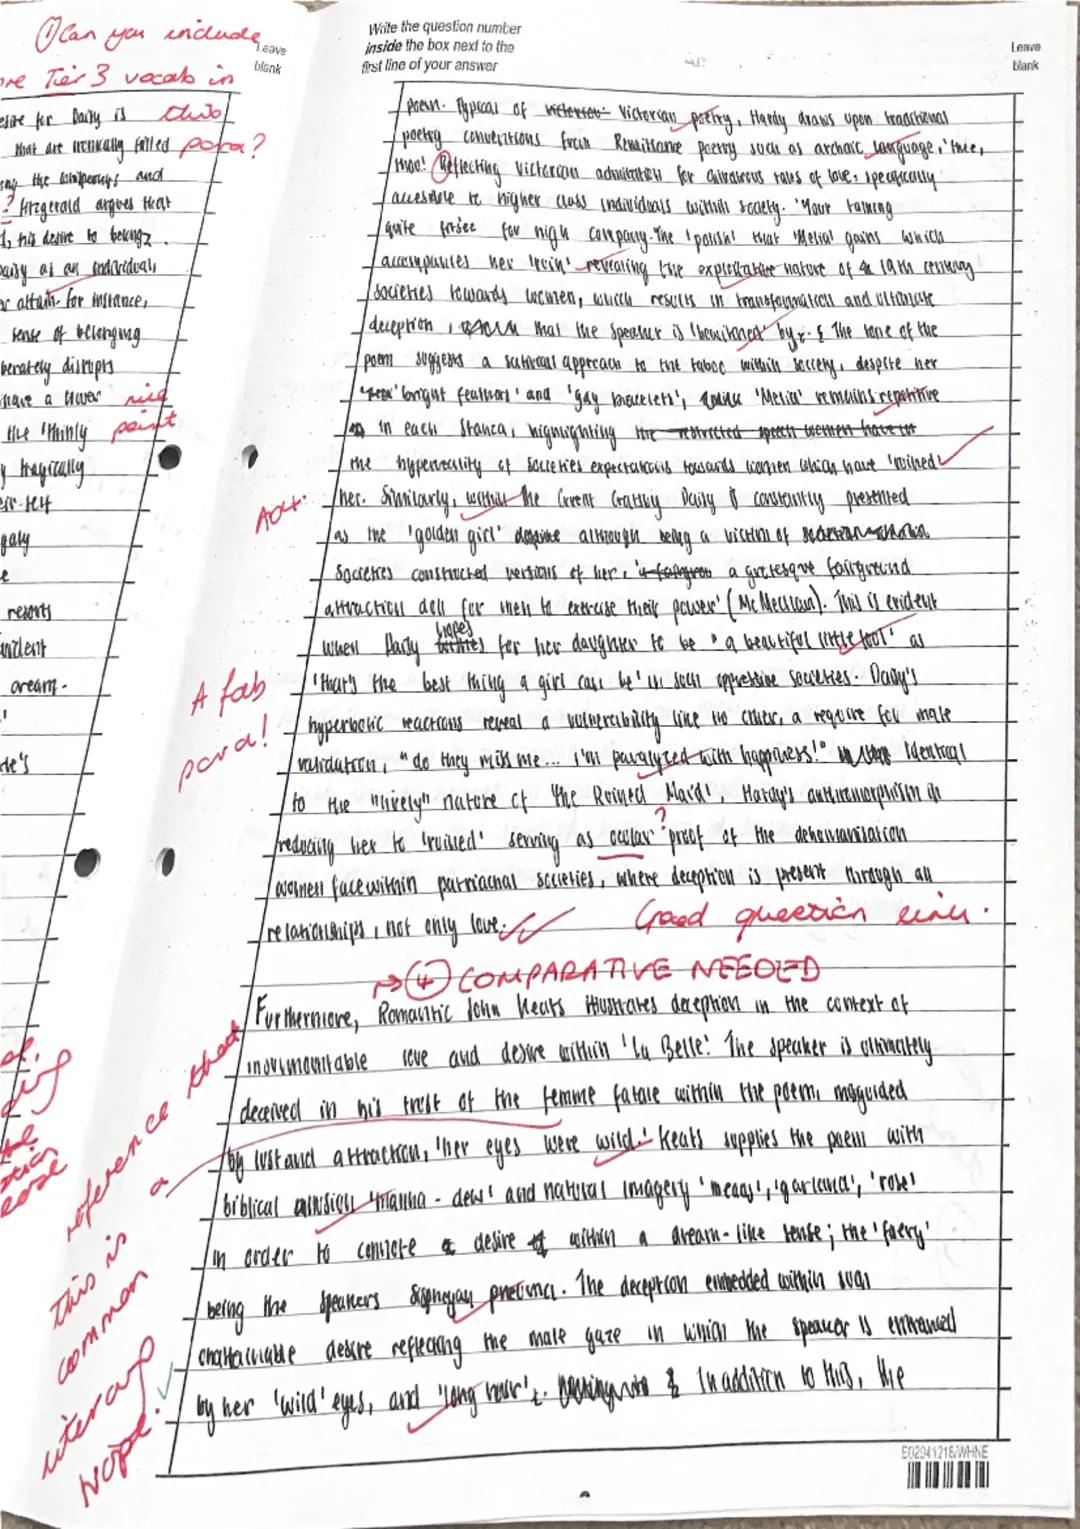 ① Can you include
Tier 3 vocab in
this
para?
Leave
blank
for Daisy is
that are ironically filled
and
? Fitzgerald argues that
his desire to belong
Daisy as an individual,
attain. for instance,
sense of belonging
disrupts
have a
nice
point
the 'thinly
tragically
resorts
dream.
Write the question number
inside the box next to the
first line of your answer
Leave
blank
poem. Typical of Victorian poetry, Hardy draws upon traditional
poetry conventions from Renaissance poetry such as archaic language, 'thee,
thou'. Reflecting Victorian admiration for chivalrous tales of love, specifically
accesible to higher class individuals within society. 'Your talking
quite for high company. The 'polish' that 'Melia' gains which
accompanies her 'ruin' revealing the exploitative nature of 19th century
societies towards women, which results in transformation and ultimate
deception, that the speaker is 'bewitched' by. The tone of the
poem suggests a satirical approach to the taboo within society, despite her
'bright feathers' and 'gay bracelets', 'Melia' remains repetitive
in each stanza, highlighting the restricted speech women have
the hypereality of societies expectations towards women which have 'ruined'
her. Similarly, within the Great Gatsby Daisy is constantly presented
as the 'golden girl' although being a victim of
societies constructed versions of her, a grotesque fairground
attraction doll for men to exercise their power' (McMechan). This is evident
when Daisy hopes for her daughter to be "a beautiful little fool' as
'that's the best thing a girl can be' in such oppressive societies. Daisy's
hyperbolic reactions reveal a vulnerability like no other, a require for male
validation, "do they miss me... I'm paralyzed with happiness!" Identical
to the "lively" nature of 'the Ruined Maid', Hardy's in
reducing her to 'ruined' serving as ocular proof of the dehumanisation
women face within patriachal societies, where deception is present through all
relationships, not only love.
AO4.
A fab
para!
?
Good question link.
→ ④ COMPARATIVE NEEDED
Furthermore, Romantic John Keats illustrates deception in the context of
love and desire within 'La Belle'. The speaker is ultimately
deceived in his trust of the femme fatale within the poem, misguided
by lust and attraction, 'her eyes were wild'. Keats supplies the poem with
biblical allusion 'manna-dew' and natural imagery 'meads', 'garland', 'rose'
in order to connote desire within a dream-like sense; the 'faery'
being the speakers. The deception embedded within such
unattainable desire reflecting the male gaze in which the speaker is enthralled
by her 'wild' eyes, and 'long hair'. In addition to this, the
a
reference that
this is
common
literary
trope.
E02941216/WHNE